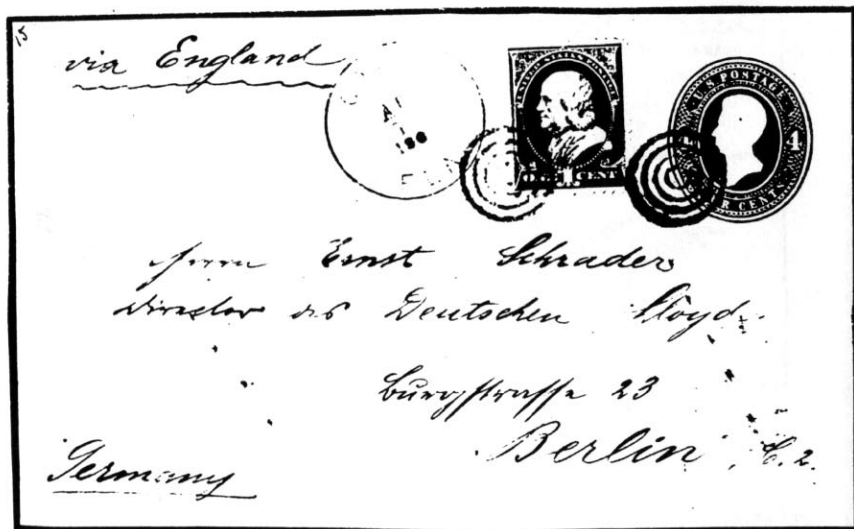 15
via England
UNITED STATES POSTAGE
1 CENT
U.S. POSTAGE
4
CENTS
Herrn Ernst Schrader
Director des Deutschen Lloyd.
Burgstrasse 23
Berlin, C. 2.
Germany